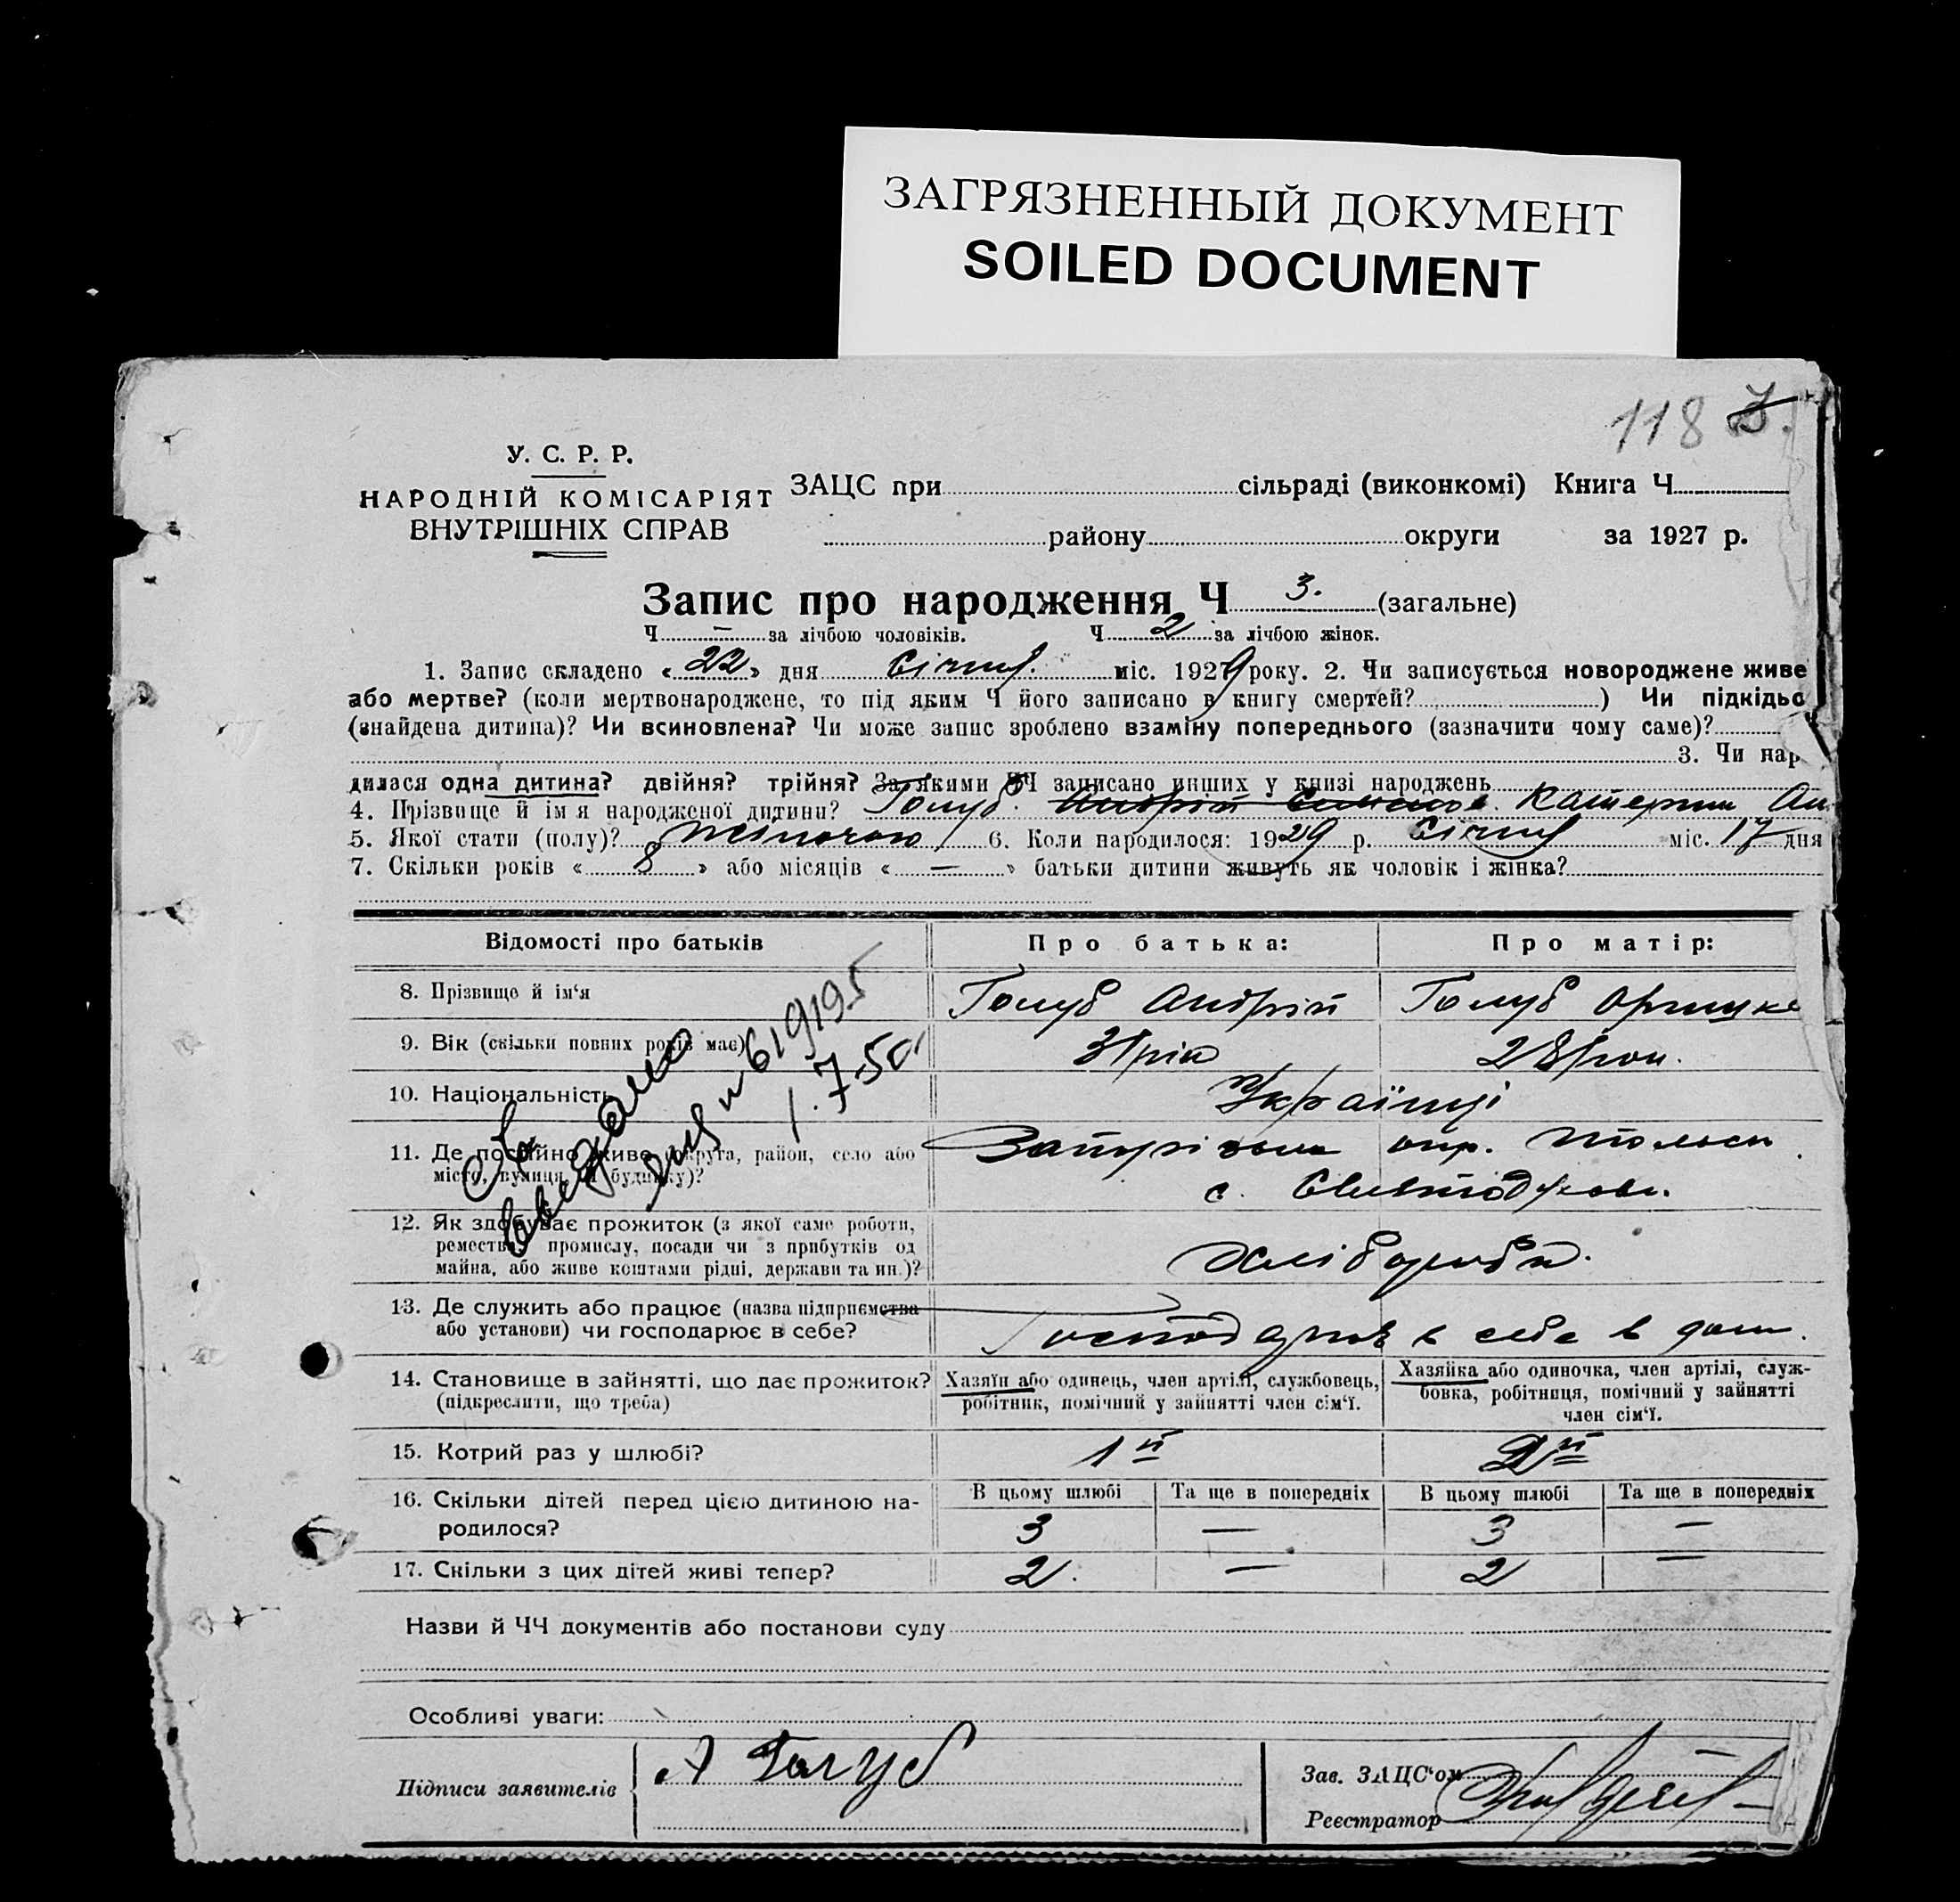 ЗАГРЯЗНЕННЫЙ ДОКУМЕНТ
SOILED DOCUMENT
118 3.
У. С. Р. Р.
НАРОДНІЙ КОМІСАРІЯТ
ВНУТРІШНІХ СПРАВ
ЗАЦС при сільраді (виконкомі) Книга Ч.
району округи за 1927 р.
Запис про народження Ч 3. (загальне)
Ч — за лічбою чоловіків. Ч 2 за лічбою жінок.
1. Запис складено «22» дня Січня міс. 1929 року. 2. Чи записується новороджене живе
або мертве? (коли мертвонароджене, то під яким Ч його записано в книгу смертей? ) Чи підкідьо
(знайдена дитина)? Чи всиновлена? Чи може запис зроблено взаміну попереднього (зазначити чому саме)?
3. Чи нар
дилася одна дитина? двійня? трійня? За якими ЧЧ записано инших у книзі народжень
4. Прізвище й ім я народженої дитини? Голуб Андрій Катерина Ан
5. Якої стати (полу)? жіночою 6. Коли народилося: 1929 р. Січня міс. 17 дня
7. Скільки років « 8 » або місяців « — » батьки дитини живуть як чоловік і жінка?
Відомості про батьків Про батька: Про матір:
8. Прізвище й ім'я Голуб Андрій Голуб
9. Вік (скільки повних років має) 31 рік 28 рок.
10. Національність Українці
11. Де постійно живе (округа, район, село або
місто, вулиця й будинку)?
Запорізька окр.
с.
12. Як здобуває прожиток (з якої саме роботи,
ремества, промислу, посади чи з прибутків од
майна, або живе коштами рідні, держави та ин.)?
хліборобы.
13. Де служить або працює (назва підприємства
або установи) чи господарює в себе?
Господарює в себе в дома.
14. Становище в зайнятті, що дає прожиток?
(підкреслити, що треба)
Хазяїн або одинець, член артілі, службовець,
робітник, помічний у зайнятті член сім'ї.
Хазяйка або одиночка, член артілі, служ-
бовка, робітниця, помічний у зайнятті
член сім'ї.
15. Котрий раз у шлюбі? 1й 2й
16. Скільки дітей перед цією дитиною на-
родилося?
В цьому шлюбі Та ще в попередніх В цьому шлюбі Та ще в попередніх
3 — 3 —
17. Скільки з цих дітей живі тепер? 2. — 2 —
Св
выдано
619195
1.7-50
Назви й ЧЧ документів або постанови суду
Особливі уваги:
Підписи заявителів А Голуб
Зав. ЗАЦС'ом
Реєстратор